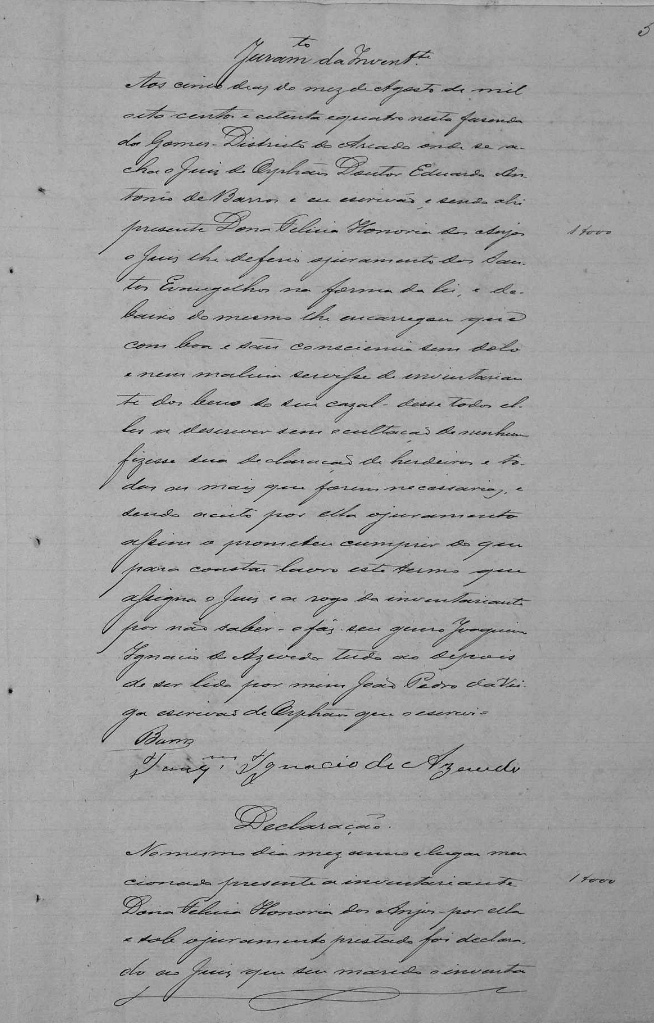 5
Juram.to da Invent.te
Aos cinco dias do mez de Agosto de mil
oito centos e setenta e quatro nesta fasenda
do Gomes Districto do Arcado onde se a-
cha o Juis de Orphãos Doutor Eduardo An-
tonio de Barros e eu escrivão e sendo ahi
presente Dona Felicia Honoria dos Anjos 1$000
o Juis lhe deferio o juramento dos San-
tos Evangelhos na forma da lei, e de-
baixo do mesmo lhe encarregou que
com boa e sãa consciencia sem dolo
e nem malicia servisse de inventarian
te dos bens do seu cazal desse todos el-
les a descrever sem ocultação de nenhum
fizesse sua declaração de herdeiros e to-
das as mais que forem necessarias, e
sendo aceito por ella o juramento
assim o prometeu cumprir do que
para constar lavro este termo que
assigna o Juis e a rogo da inventariante
por não saber o fás seu genro Joaquim
Ignacio de Azevedo tudo ao depois
de ser lido por mim João Pedro da Vei-
ga escrivão de Orphãos que o escrevi
Barros
Joaq.m Ignacio de Azevedo
Declaração.
No mesmo dia mez anno e lugar men
cionado presente a inventariante 1$000
Dona Felicia Honoria dos Anjos por ella
e sob o juramento prestado foi declara
do ao Juis que seu marido o inventa